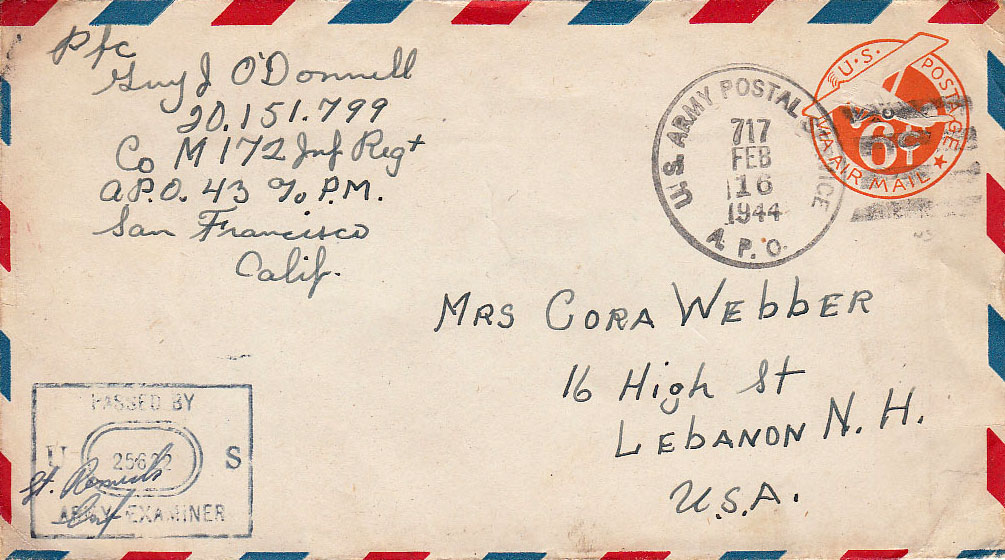 Pfc
Guy J O'Donnell
20.151.799
Co M 172 Inf Regt
A.P.O. 43 % P.M.
San Francisco
Calif.
U.S. ARMY POSTAL SERVICE
717
FEB
16
1944
A. P. O.
U.S. POSTAGE
6¢
VIA AIR MAIL
MRS CORA WEBBER
16 HIGH St
LEBANON N. H.
U.S.A.
PASSED BY
U S
ARMY EXAMINER